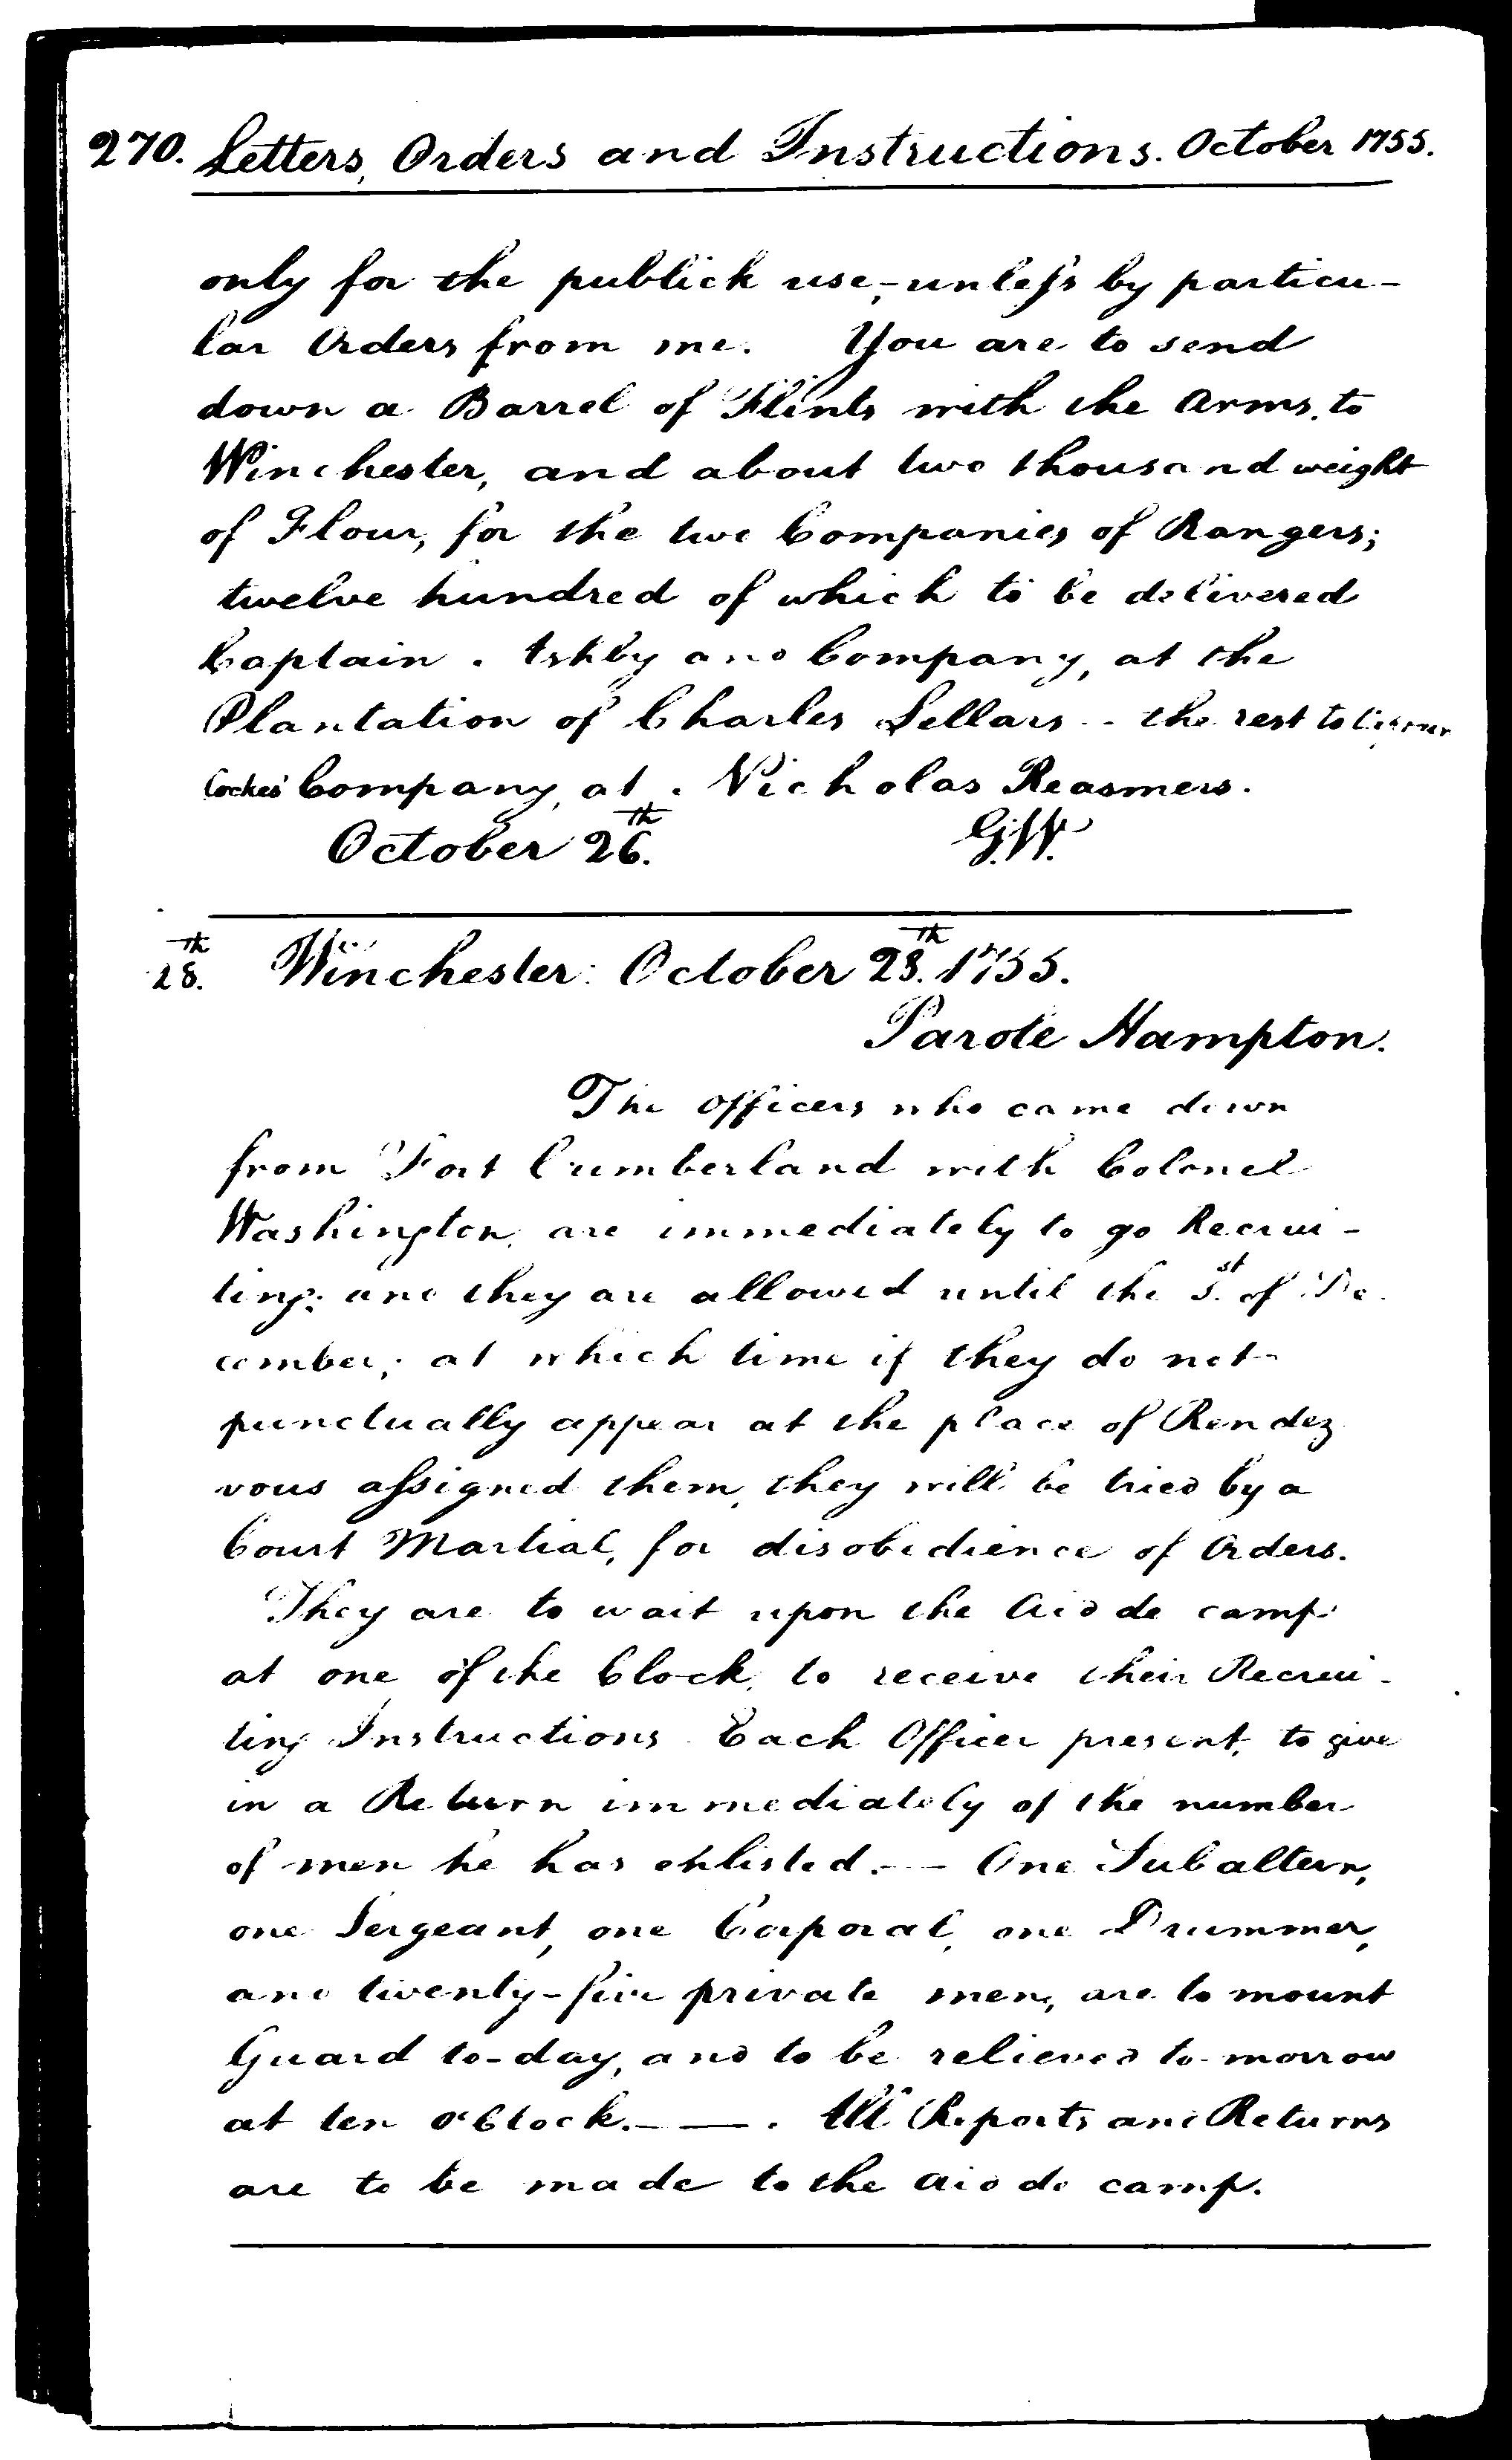 270. Letters, Orders and Instructions. October 1755.
only for the publick use,- unless by particu-
lar Orders from me. You are to send
down a Barrel of Flints with the Arms, to
Winchester, and about two thousand weight
of Flour, for the two Companies of Rangers;
twelve hundred of which to be delivered
Captain Ashby and Company, at the
Plantation of Charles Sellars - the rest to Captain
Cockes' Company, at Nicholas Reasmers.
October 26th. G.W.
28th. Winchester: October 28th. 1755.
Parole Hampton.
The officers who came down
from Fort Cumberland with Colonel
Washington, are immediately to go Recrui-
ting; and they are allowed until the 1st. of De-
cember; at which time if they do not
punctually appear at the place of Rendez
vous assigned them, they will be tried by a
Court Martial, for disobedience of Orders.
They are to wait upon the Aid de camp
at one of the Clock, to receive their Recrui-
ting Instructions. Each Officer present, to give
in a Return immediately of the number
of men he has enlisted. -- One Subaltern,
one Sergeant, one Corporal, one Drummer,
and twenty-five private men, are to mount
Guard to-day, and to be relieved to-morrow
at ten o'Clock. -- All Reports and Returns
are to be made to the Aid de camp.